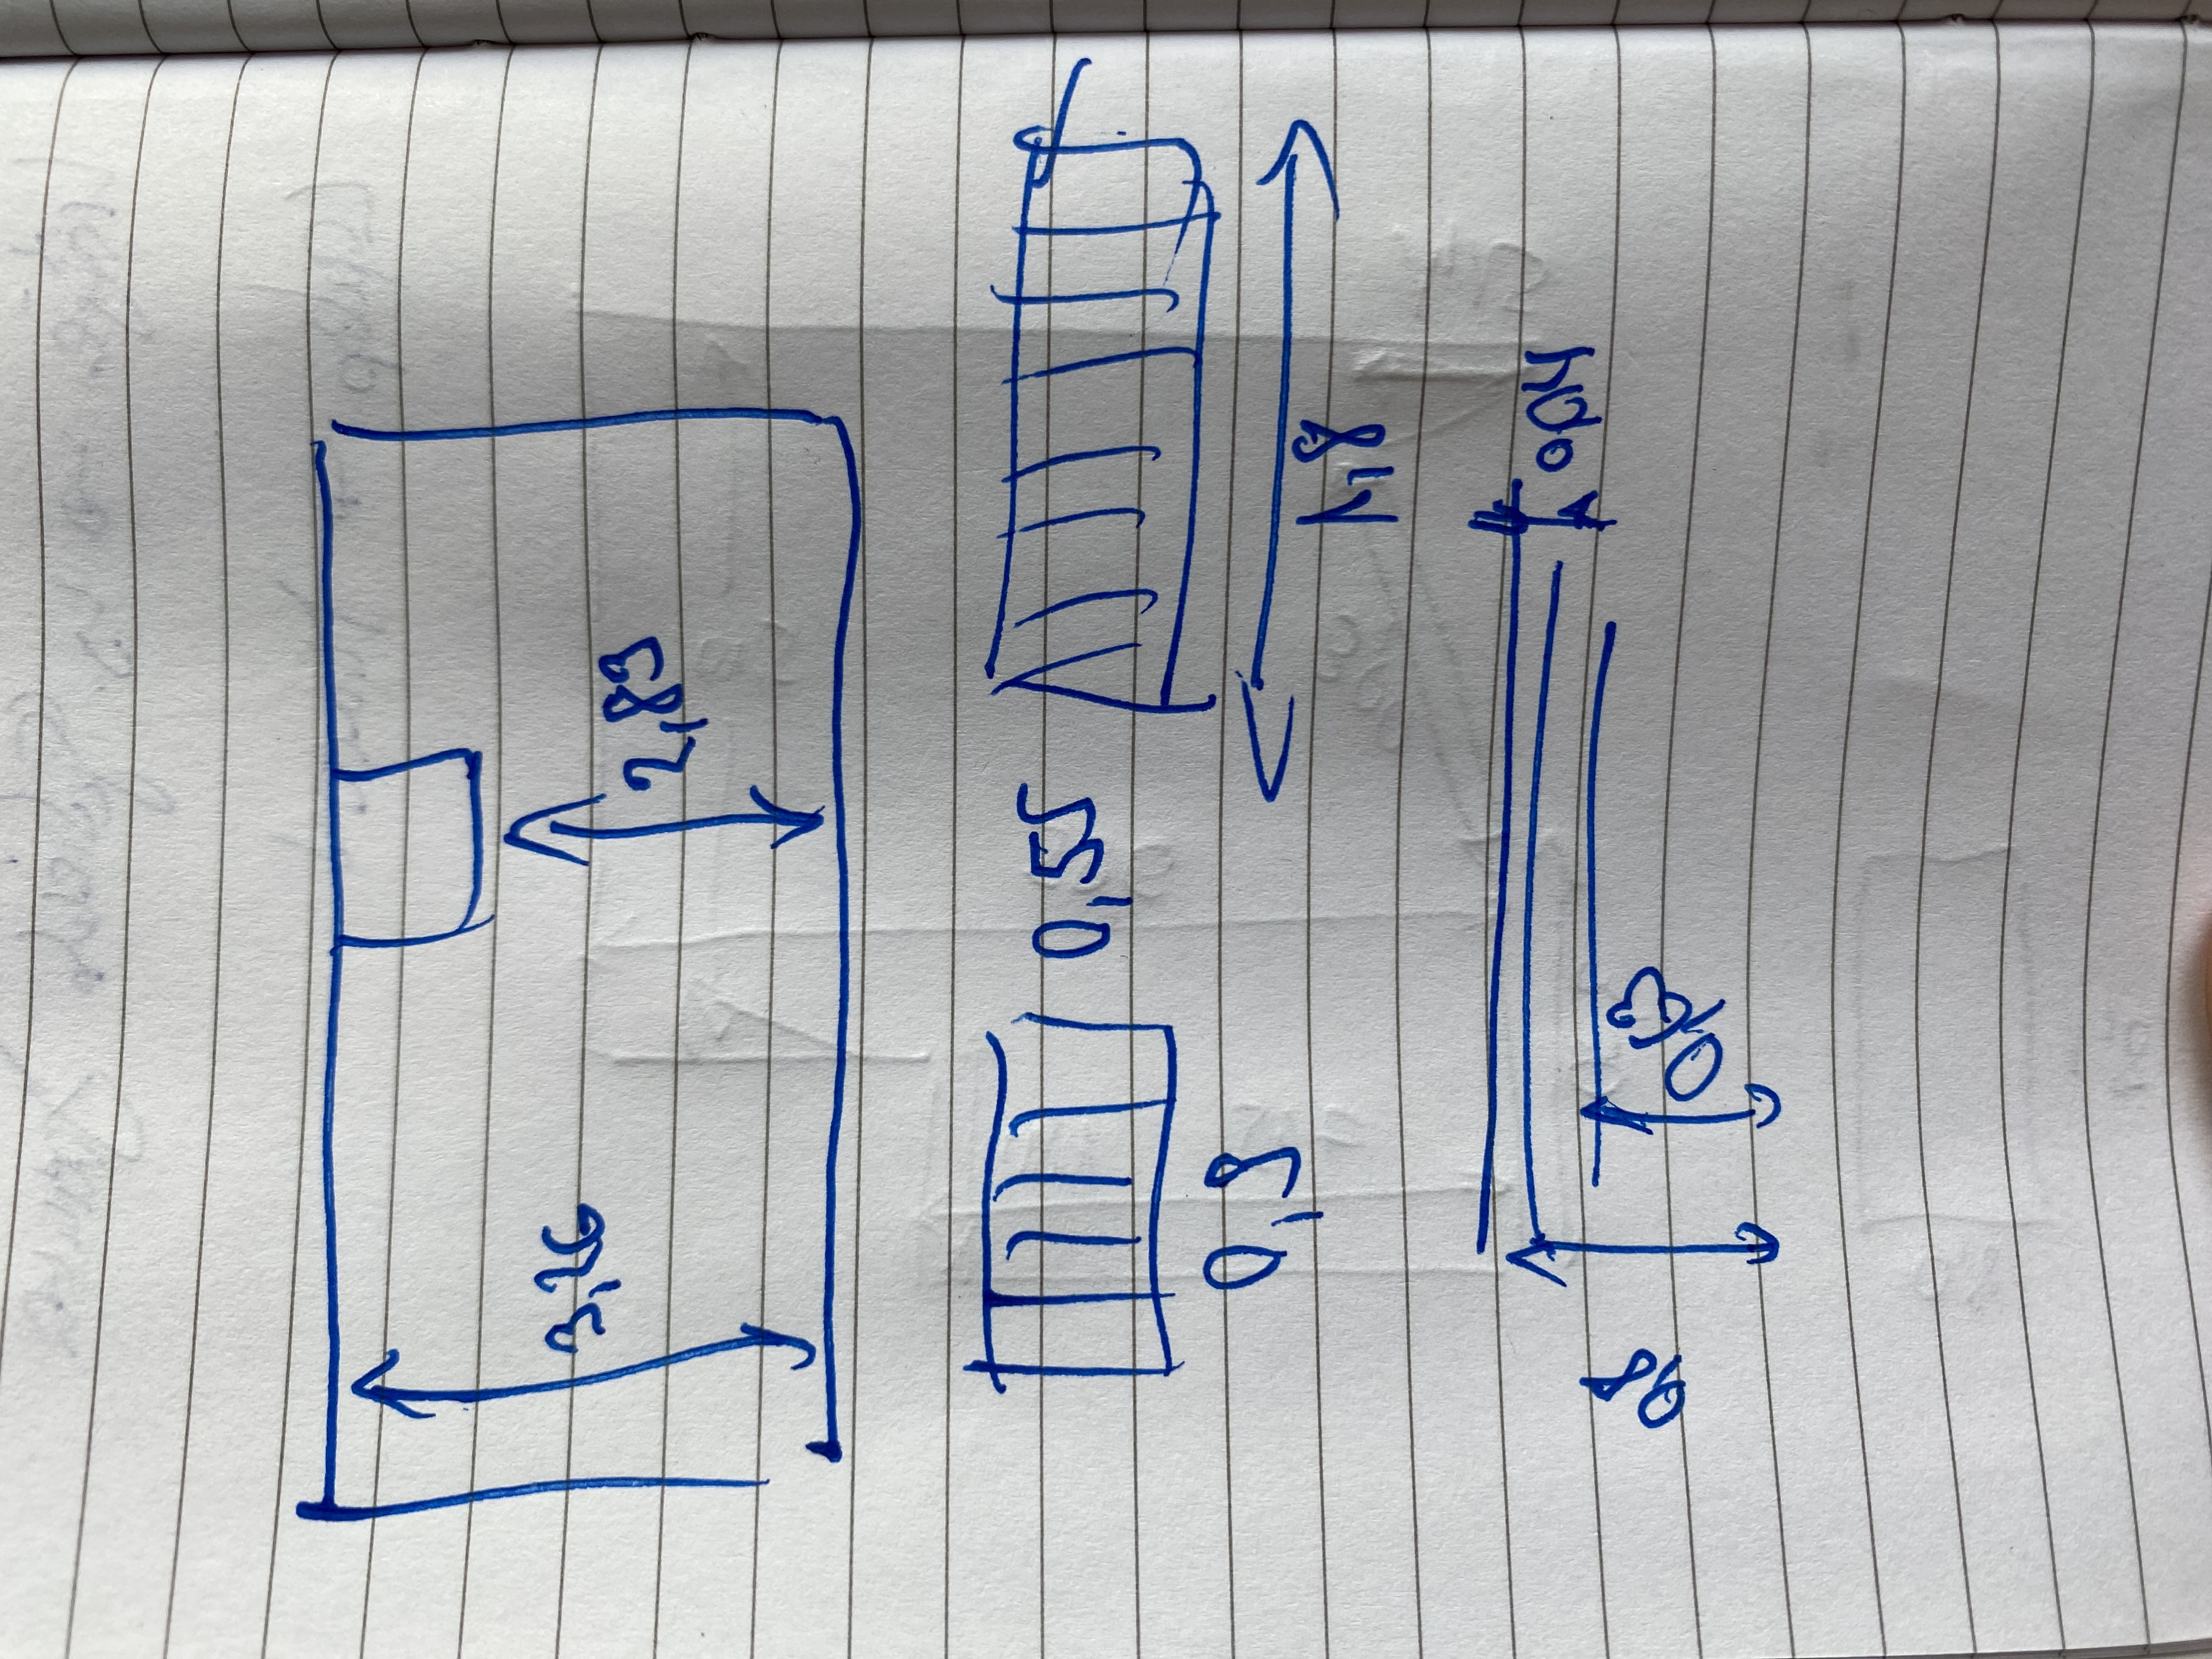 3,26
2,89
0,55
0,9
1,8
0,04
0,8
0,63